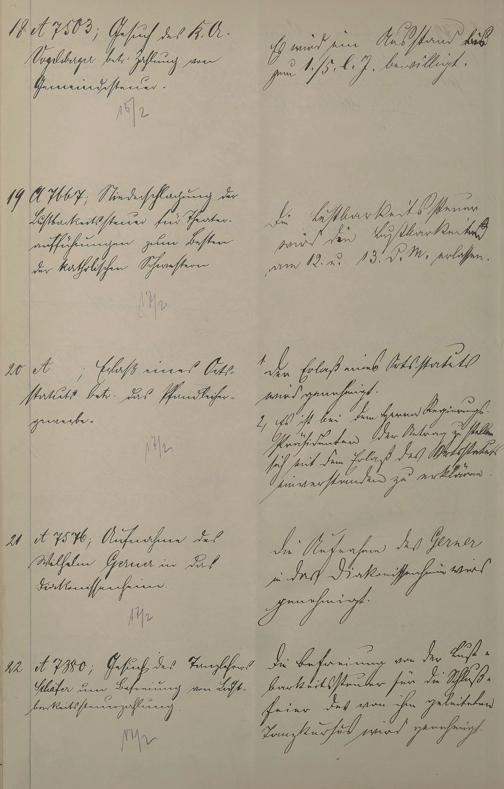 18 A 7503; Gesuch des K. A.
betr. Zahlung von
Gemeindesteuer.
15/2
Es wird ein Ausstand bis
zum 1./5. l. J. bewilligt.
19 A 7667; Niederschlagung der
Lustbarkeitssteuer für Theater-
aufführungen zum Besten
der katholischen Schwestern
17/2
Die Lustbarkeitssteuer
wird den Lustbarkeiten
am 12. u. 13. d. M. erlassen.
20 A ; Erlaß eines Orts-
statuts betr. das Pfandleiher-
gewerbe.
17/2
1 Der Erlaß eines Ortsstatuts
wird genehmigt.
2, Es ist bei dem Herrn Regierungs-
Präsidenten der Antrag zu stellen
sich mit dem Erlaß des Ortsstatuts
einverstanden zu erklären.
21 A 7576; Aufnahme des
Wilhelm Gerner in das
Diakonissenheim.
17/2
Die Aufnahme des Gerner
in das Diakonissenheim wird
genehmigt.
22 A 7380; Gesuch des Tanzlehrers
Schäfer um Befreiung von Lust-
barkeitssteuerzahlung.
17/2
Die Befreiung von der Lust-
barkeitssteuer für die Schluß-
feier des von ihm geleiteten
Tanzkursus wird genehmigt.